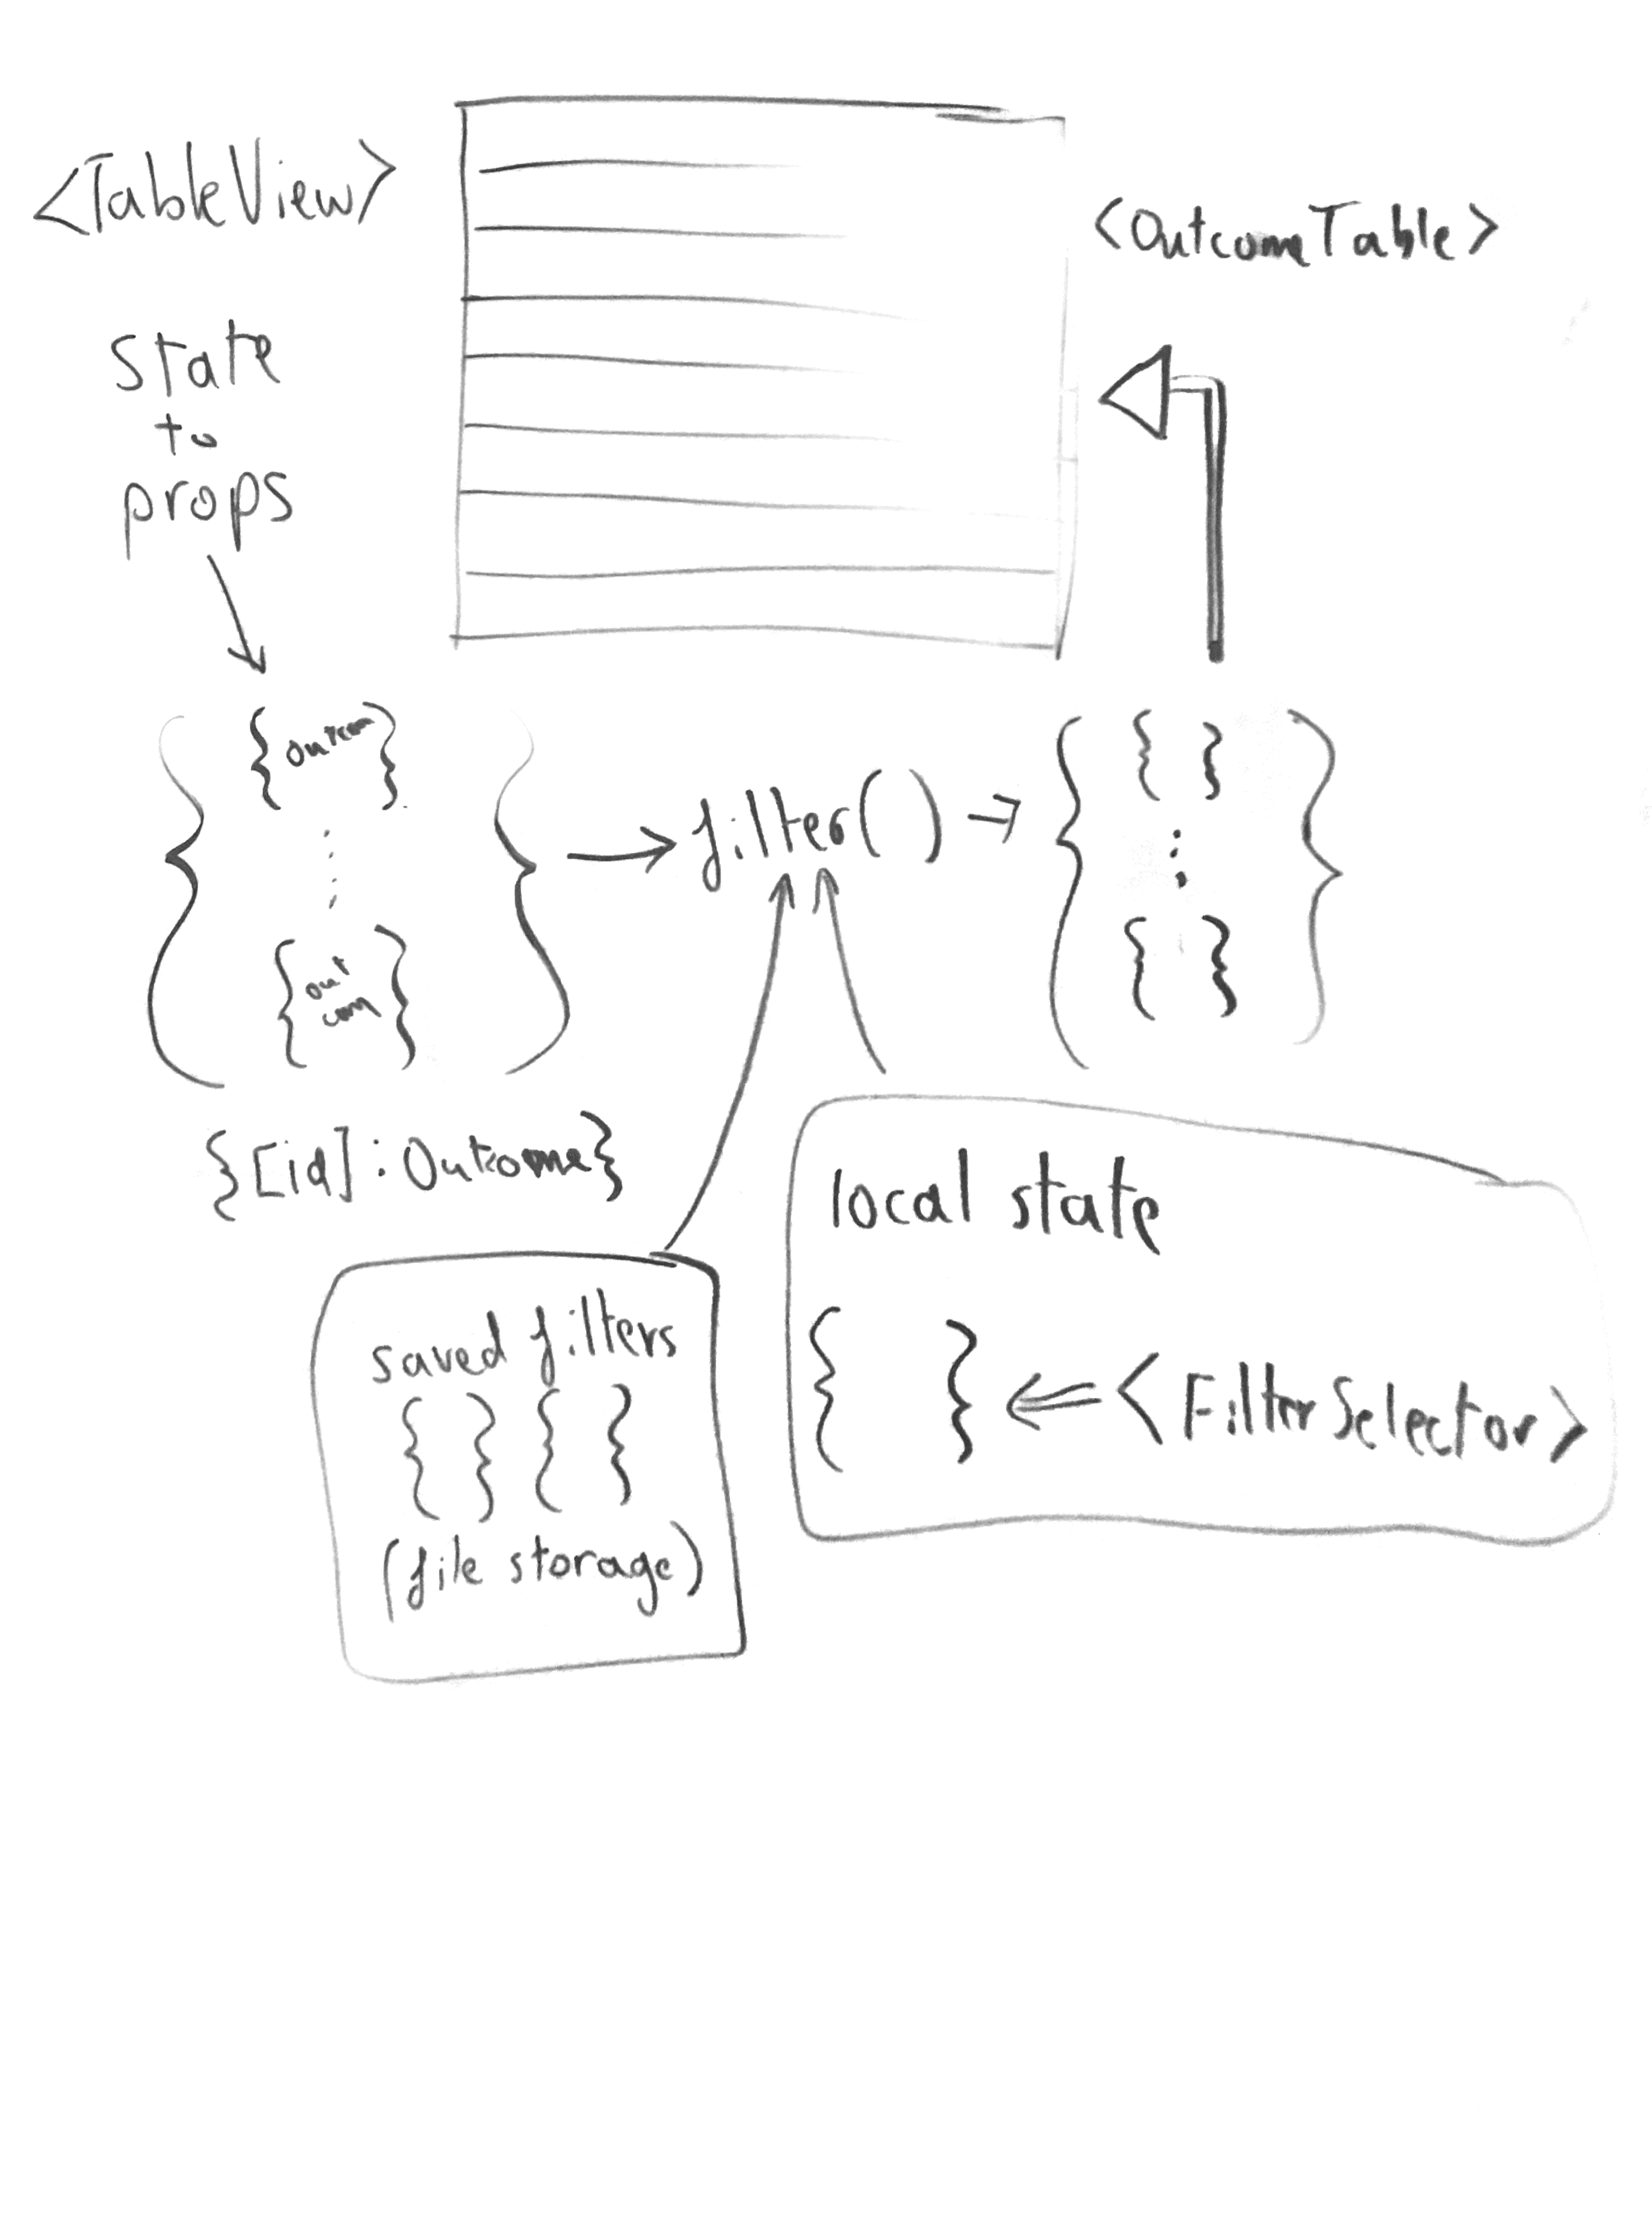 <TableView>
<OutcomeTable>
state
to
props
{outcom}
{ }
filter()
{out
com}
{ }
{[id]:Outcome}
local state
saved filters
{ } <= <FilterSelector>
{ } { }
(file storage)